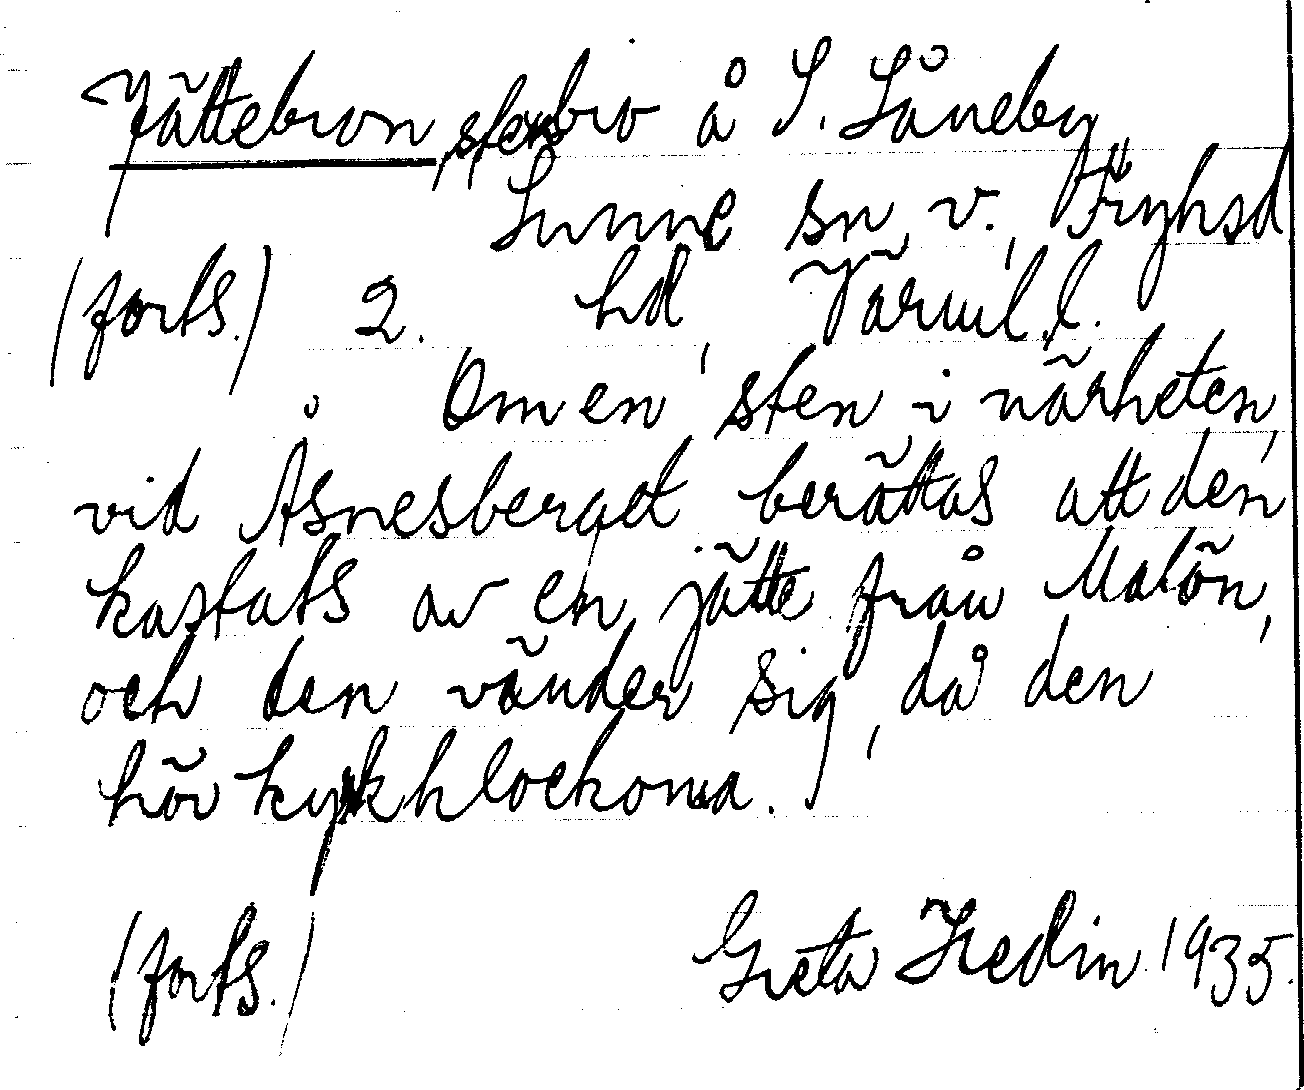 Jättebron, stenbro å S. Såneby,
Sunne sn, v., Fryksd
(forts.) 2. hd, Värml. l.
Om en sten i närheten,
vid Åsnesberget berättas att den
kastats av en jätte från Malön,
och den vänder sig, då den
hör kyrkklockorna.
(forts.) Greta Hedin 1935.